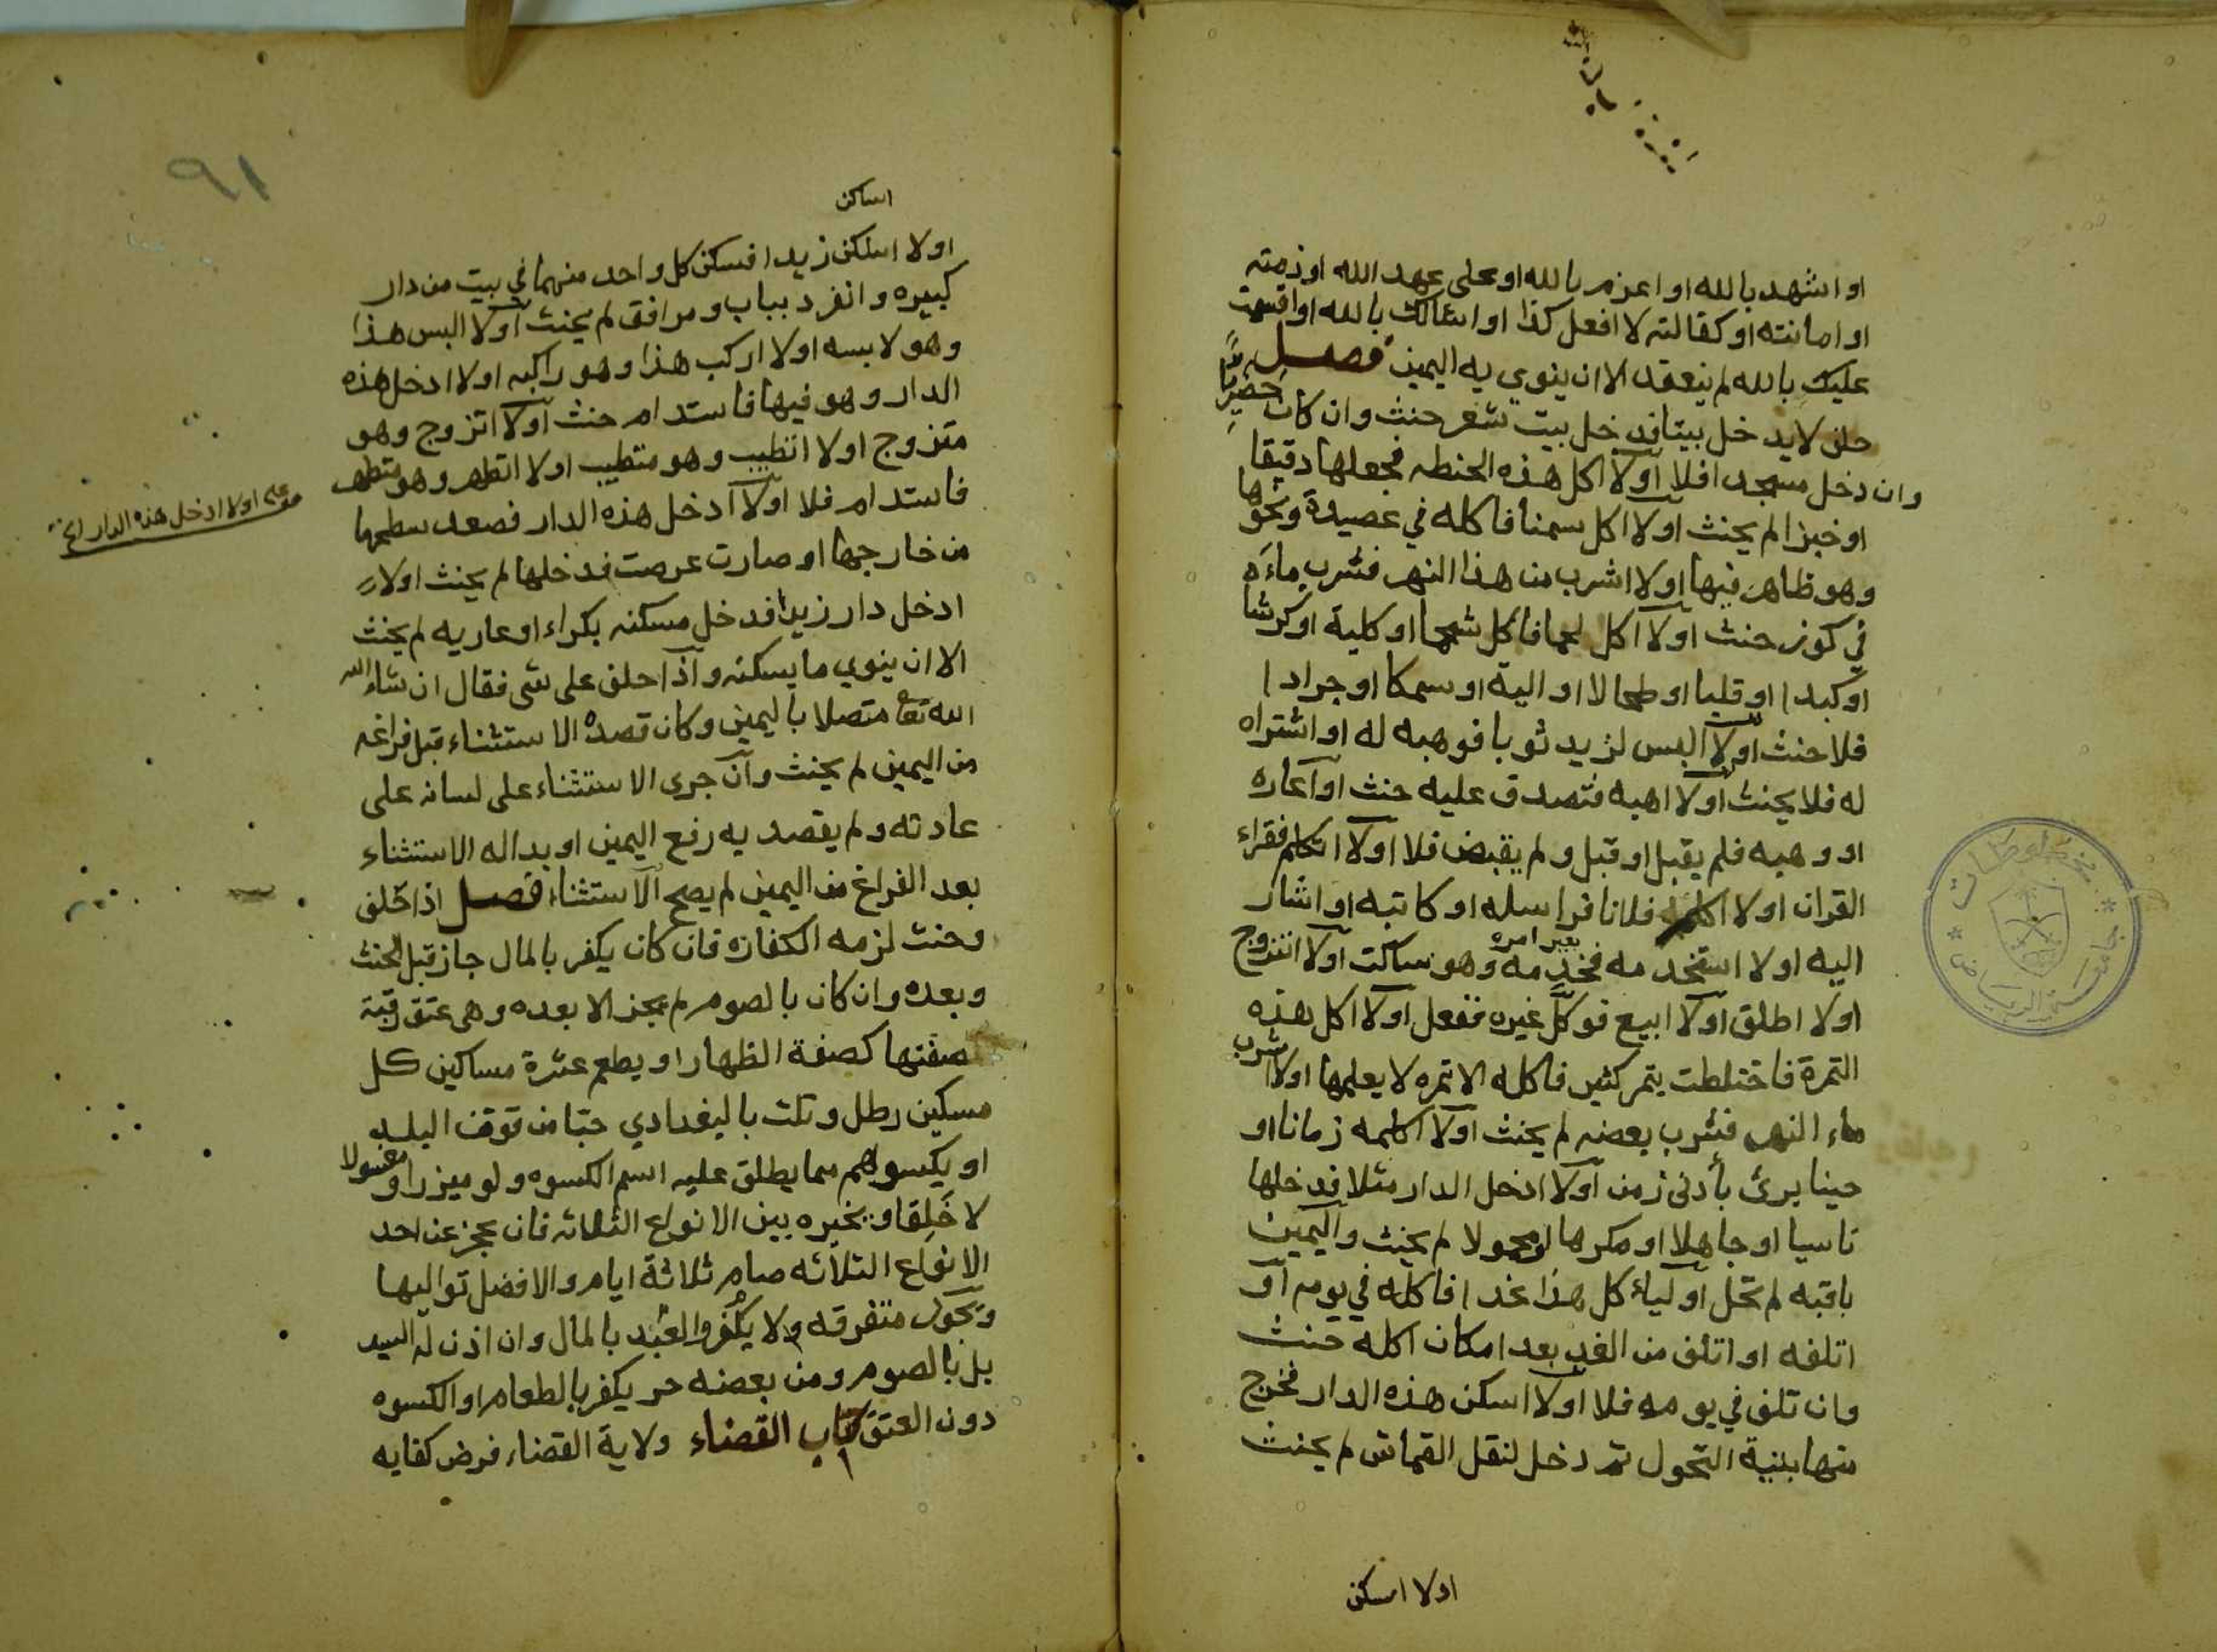 او اشهد بالله او اعزم بالله او على عهد الله او ذمته
او امانته او كفالته لا افعل كذا او اسالك بالله او اقسمت
عليك بالله لم ينعقد الا ان ينوي به اليمين فصل
حلف لا يدخل بيتا فدخل بيت شعر حنث وان كان حضريا
وان دخل مسجدا فلا او لا اكل هذه الحنطه فجعلها دقيقا
او خبزا لم يحنث او لا اكل سمنا فاكله في عصيدة ونحوها
وهو ظاهر فيها او لا اشرب من هذا النهر فشرب ماءه
في كوز حنث او لا اكل لحما فاكل شحما او كلية او كرشا
او كبدا او قلبا او طحالا او الية او سمكا او جرادا
فلا حنث او لا البس لزيد ثوبا فوهبه له او اشتراه
له فلا يحنث او لا اهبه فتصدق عليه حنث او اعاره
او وهبه فلم يقبل او قبل ولم يقبض فلا او لا اتكلم فقراء
القران او لا اكلم فلانا فراسله او كاتبه او اشار
اليه او لا استخدمه فخدمه بغير امره وهو ساكت او لا اتزوج
او لا اطلق او لا ابيع فوكل غيره ففعل او لا اكل هذه
التمرة فاختلطت بتمر كثير فاكله الا تمره لا يعلمها او لا اشرب
ماء النهر فشرب بعضه لم يحنث او لا اكلمه زمانا او
حينا برئ بأدنى زمن او لا ادخل الدار مثلا فدخلها
ناسيا او جاهلا او مكرها او محمولا لم يحنث واليمين
باقيه لم تحل او لياء كل هذا غدا فاكله في يومه او
اتلفه او اتلف من الغد بعد امكان اكله حنث
وان تلف في يومه فلا او لا اسكن هذه الدار فخرج
منها بنية التحول ثم دخل لنقل القماش لم يحنث
او لا اسكن
جامعة الرياض
٩١
اساكن
او لا اسكن زيدا فسكن كل واحد منهما في بيت من دار
كبيره وانفرد بباب ومرافق لم يحنث او لا البس هذا
وهو لابسه او لا اركب هذا وهو راكبه او لا ادخل هذه
الدار وهو فيها فاستدام حنث او لا اتزوج وهو
متزوج او لا اتطيب وهو متطيب او لا اتطهر وهو متطهر
فاستدام فلا او لا ادخل هذه الدار فصعد سطحها
او لا ادخل هذه الدار الخ
من خارجها او صارت عرصت فدخلها لم يحنث او لا
ادخل دار زيد فدخل مسكنه بكراء او عاريه لم يحنث
الا ان ينوي ما يسكنه واذا حلف على شي فقال ان شاء الله
الله تعا متصلا باليمين وكان قصده الاستثناء قبل فراغه
من اليمين لم يحنث وان جرى الاستثناء على لسانه على
عادته ولم يقصد به رفع اليمين او بدا له الاستثناء
بعد الفراغ من اليمين لم يصح الاستثناء فصل اذا حلف
وحنث لزمه الكفاره فان كان يكفر بالمال جاز قبل الحنث
وبعده وان كان بالصوم لم يجز الا بعده وهي عتق رقبة
صفتها كصفة الظهار او يطعم عشرة مساكين كل
مسكين رطل وثلث بالبغدادي حبا من قوت البلد
او يكسوهم مما يطلق عليه اسم الكسوه ولو ميزرا ومغسولا
لا خلقا ويخيره بين الانواع الثلاثه فان عجز عن احد
الانواع الثلاثه صام ثلاثة ايام والافضل تواليها
ويجوز متفرقه ولا يكفر العبد بالمال وان اذن له السيد
بل بالصوم ومن بعضه حر يكفر بالطعام او الكسوه
دون العتق كتاب القضاء ولاية القضاء فرض كفايه